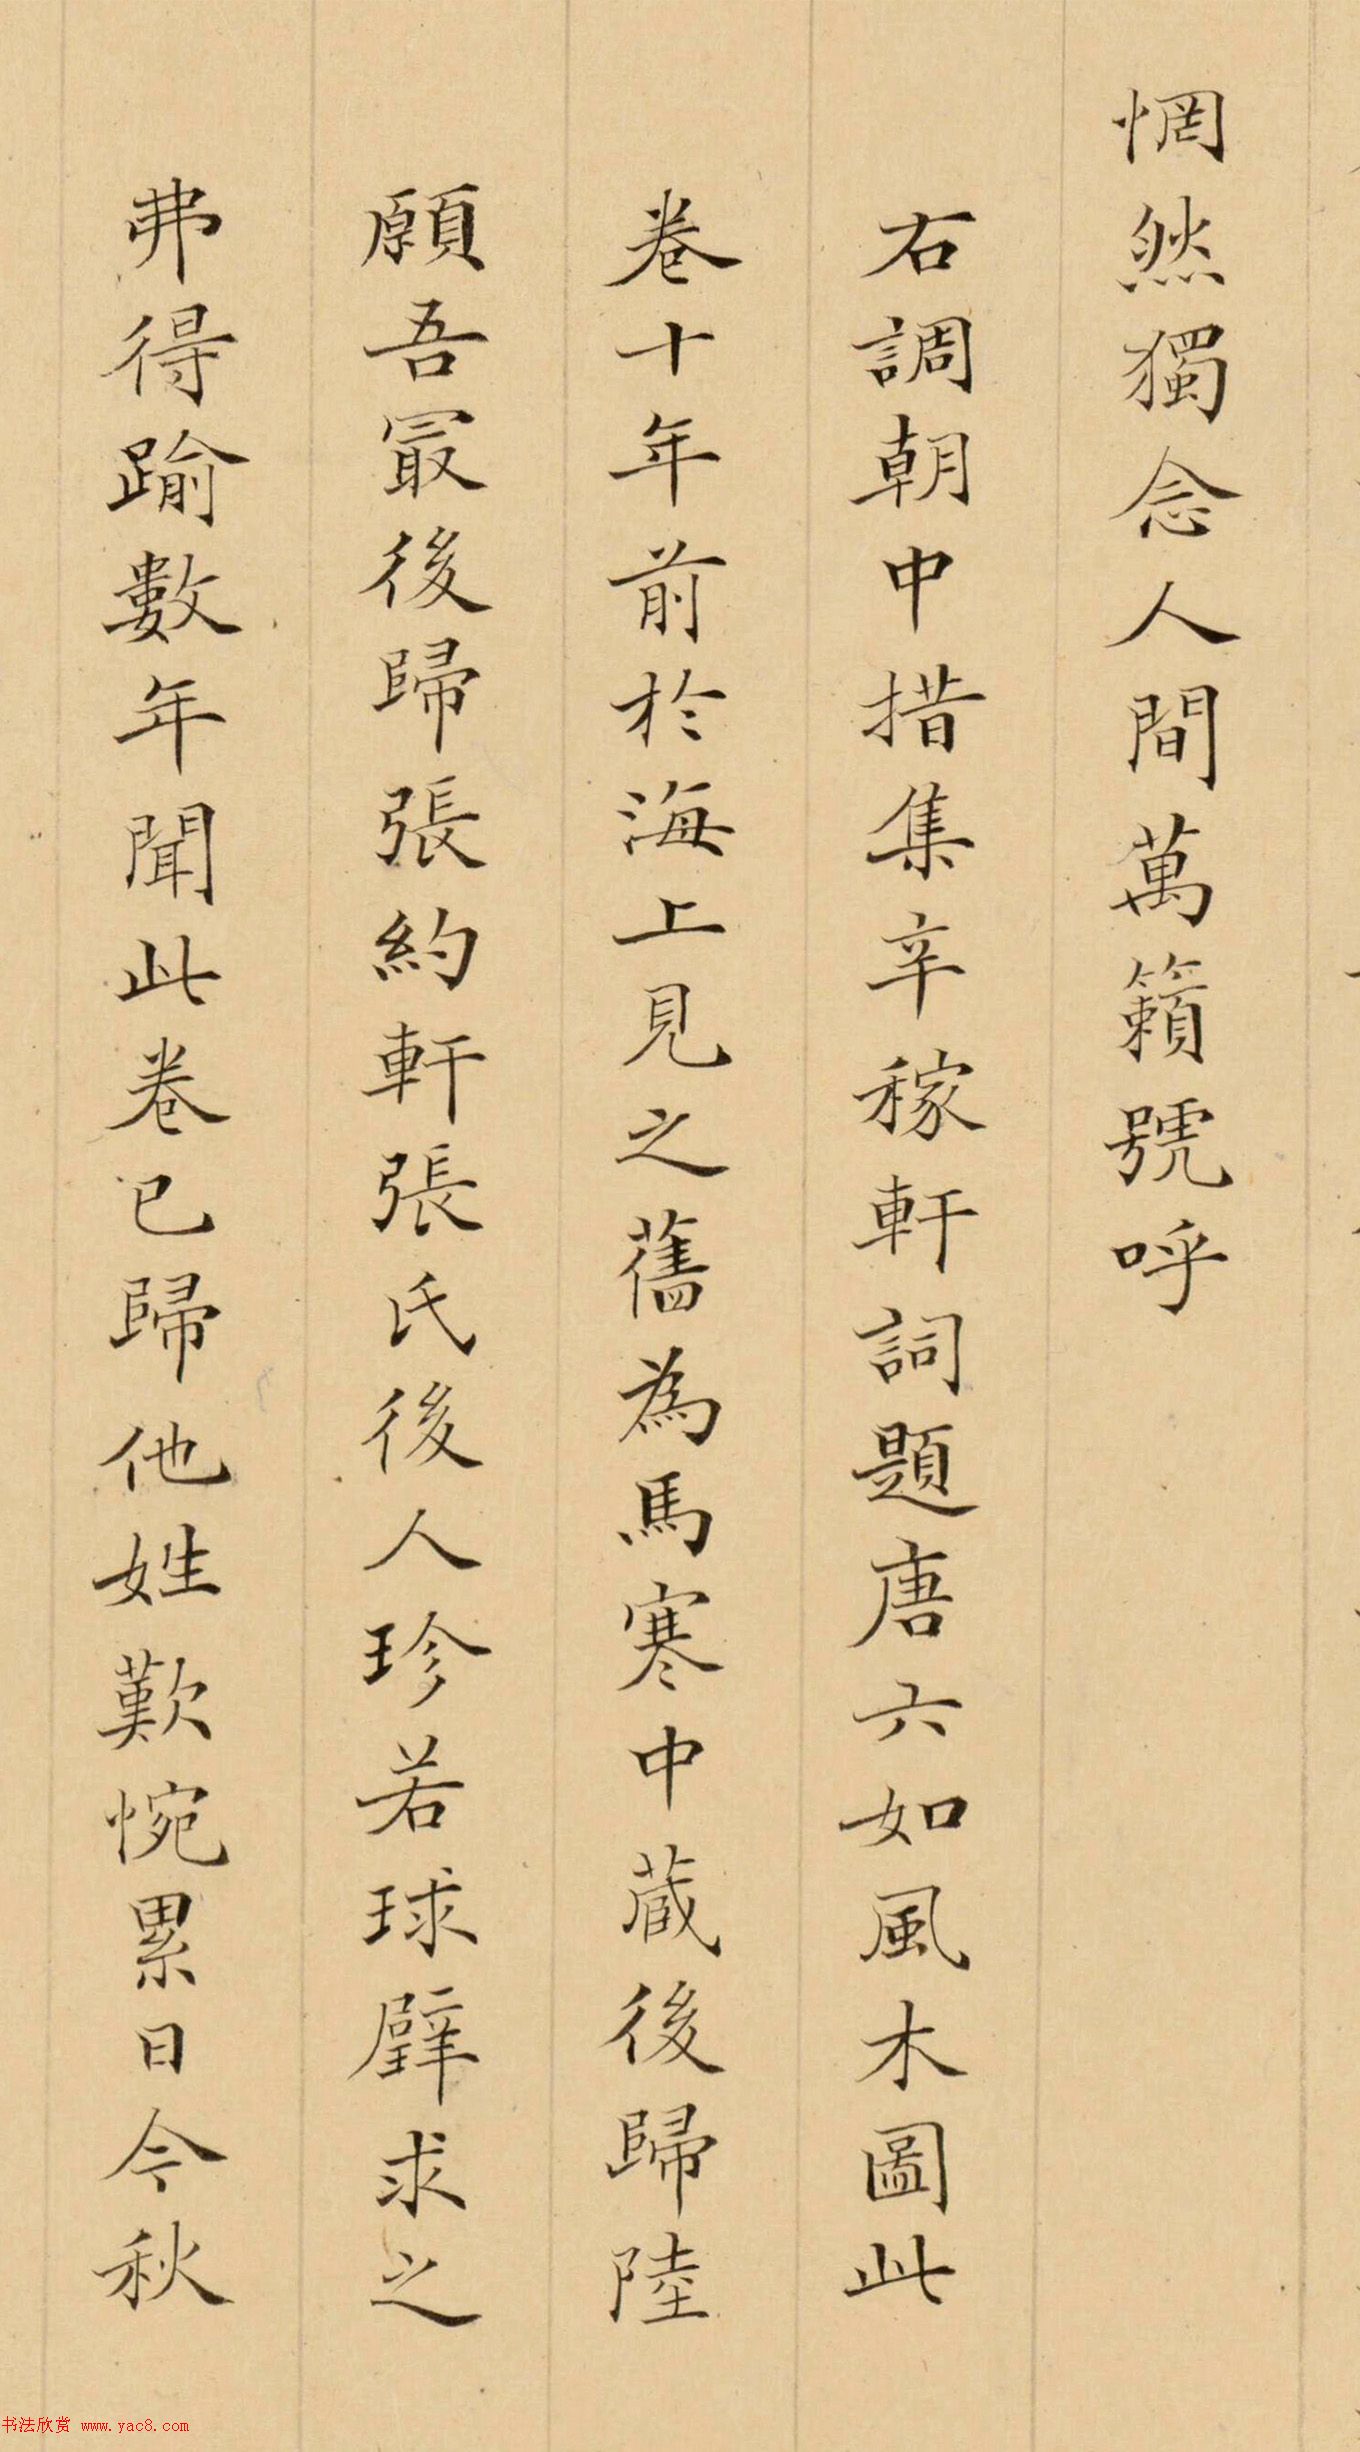 惘然獨念人間萬籟號呼
右調朝中措集辛稼軒詞題唐六如風木圖此
卷十年前於海上見之舊為馬寒中蔵後歸陸
願吾冣後歸張約軒張氏後人珍若球璧求之
弗得踰數年聞此卷已歸他姓歎惋累日今秋
书法欣赏 www.yac8.com